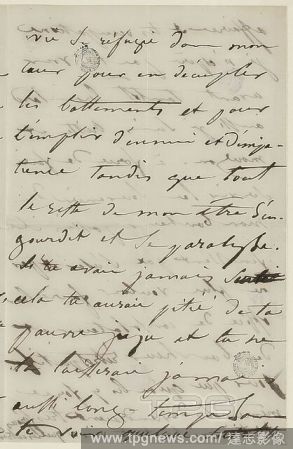 vie se réfugie dans mon
cœur pour en décupler
les battements et pour
l'emplir d'ennui et d'impa-
tience tandis que tout
le reste de mon être s'en-
gourdit et se paralyse.
Si tu avais jamais senti
cela tu aurais pitié de ta
pauvre juju et tu ne
la laisserais jamais
aussi long-temps sans
te voir
TPG
www.tpgnews.com/達志影像